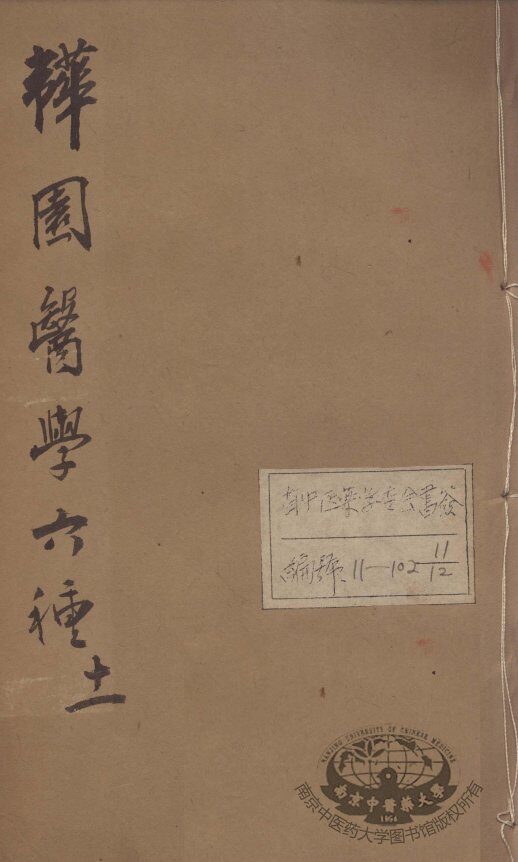 韡園醫學六種
十一
省中医藥学会藏書簽
編號 11—102 11/12
NANJING UNIVERSITY OF CHINESE MEDICINE
南京中醫藥大學
1954
南京中医药大学图书馆版权所有